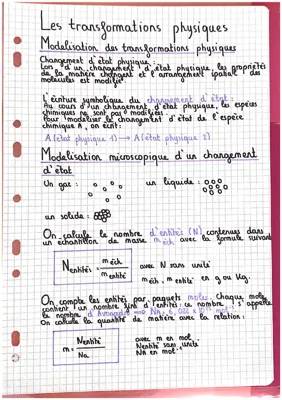 Les transformations physiques
Modélisation des transformations physiques
Changement d'état physique.
Lors d'un changement d'état physique, les propriétés
de la matière changent et l'arrangement spatial des
molécules est modifié.
L'écriture symbolique du changement d'état :
Au cours d'un changement d'état physique, les espèces
chimiques ne sont pas modifiées.
Pour modéliser le changement d'état de l'espèce
chimique A, on écrit :
A (état physique 1) → A (état physique 2)
Modélisation microscopique d'un changement
d'état
Un gaz :
un liquide :
un solide :
On calcule le nombre d'entités (N) contenues dans
un échantillon de masse m éch avec la formule suivante
N entités = m éch / m entité
avec N sans unité
m éch, m entité en g ou kg.
On compte les entités par paquets moles. Chaque mole
contient un nombre d'entités, ce nombre s'appelle
le nombre d'Avogadro => Na = 6,022 x 10²³
On calcule la quantité de matière avec la relation :
n = N entité / Na
avec n en mol
N entité sans unité
Na en mol⁻¹